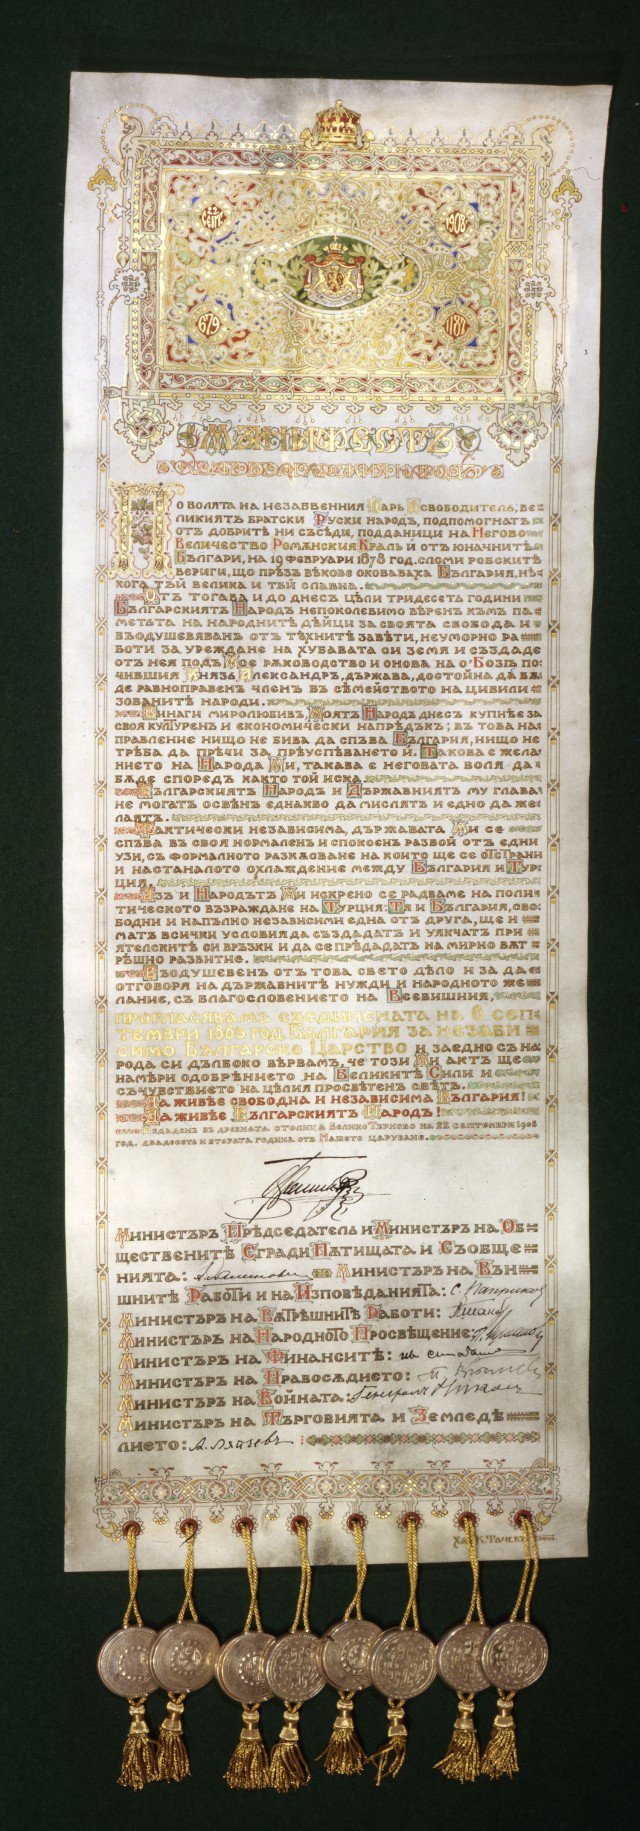 22 СЕПТ.
1908
679
1187
МАНИФЕСТЪ
КЪМЪ БЪЛГАРСКИЯ НАРОДЪ
ПО ВОЛЯТА НА НЕЗАБВЕННИЯ ЦАРЬ ОСВОБОДИТЕЛЬ, ВЕ-
ЛИКИЯТЪ БРАТСКИ РУСКИ НАРОДЪ, ПОДПОМОГНАТЪ
ОТЪ ДОБРИТѢ НИ СЪСѢДИ, ПОДДАНИЦИ НА НЕГОВО
ВЕЛИЧЕСТВО РОМѪНСКИЯ КРАЛЬ И ОТЪ ЮНАЧНИТѢ
БЪЛГАРИ, НА 19 ФЕВРУАРИ 1878 ГОД. СЛОМИ РОБСКИТѢ
ВЕРИГИ, ЩО ПРѢЗЪ ВѢКОВЕ ОКОВАВАХА БЪЛГАРИЯ, НѢ-
КОГА ТЪЙ ВЕЛИКА И ТЪЙ СЛАВНА.
ОТЪ ТОГАВА И ДО ДНЕСЪ ЦѢЛИ ТРИДЕСЕТЬ ГОДИНИ
БЪЛГАРСКИЯТЪ НАРОДЪ НЕПОКОЛЕБИМО ВѢРЕНЪ КЪМЪ ПА-
МЕТЬТА НА НАРОДНИТѢ ДѢЙЦИ ЗА СВОЯТА СВОБОДА И
ВЪОДУШЕВЯВАНЪ ОТЪ ТѢХНИТѢ ЗАВѢТИ, НЕУМОРНО РА-
БОТИ ЗА УРЕЖДАНЕ НА ХУБАВАТА СИ ЗЕМЯ И СЪЗДАДЕ
ОТЪ НЕЯ ПОДЪ МОЕ РѪКОВОДСТВО И ОНОВА НА О'БОЗѢ ПО-
ЧИВШИЯ КНЯЗЪ АЛЕКСАНДРЪ, ДЪРЖАВА, ДОСТОЙНА ДА БѪ-
ДЕ РАВНОПРАВЕНЪ ЧЛЕНЪ ВЪ СЕМЕЙСТВОТО НА ЦИВИЛИ-
ЗОВАНИТѢ НАРОДИ.
ВИНАГИ МИРОЛЮБИВЪ, МОЯТЪ НАРОДЪ ДНЕСЪ КУПНѢЕ ЗА
СВОЯ КУЛТУРЕНЪ И ЕКОНОМИЧЕСКИ НАПРѢДЪКЪ; ВЪ ТОВА НА-
ПРАВЛЕНИЕ НИЩО НЕ БИВА ДА СПЪВА БЪЛГАРИЯ, НИЩО НЕ
ТРѢБА ДА ПРѢЧИ ЗА ПРѢУСПѢВАНЕТО Й. ТАКОВА Е ЖЕЛА-
НИЕТО НА НАРОДА МИ, ТАКАВА Е НЕГОВАТА ВОЛЯ ДА
БѪДЕ СПОРЕДЪ КАКТО ТОЙ ИСКА.
БЪЛГАРСКИЯТЪ НАРОДЪ И ДЪРЖАВНИЯТЪ МУ ГЛАВА
НЕ МОГАТЪ ОСВѢНЪ ЕДНАКВО ДА МИСЛЯТЪ И ЕДНО ДА ЖЕ-
ЛАЯТЪ.
ФАКТИЧЕСКИ НЕЗАВИСИМА, ДЪРЖАВАТА МИ СЕ
СПЪВА ВЪ СВОЯ НОРМАЛЕНЪ И СПОКОЕНЪ РАЗВОЙ ОТЪ ЕДНИ
УЗИ, СЪ ФОРМАЛНОТО РАЗКѪСВАНЕ НА КОИТО ЩЕ СЕ ОТСТРАНИ
И НАСТАНАЛОТО ОХЛАЖДЕНИЕ МЕЖДУ БЪЛГАРИЯ И ТУР-
ЦИЯ.
АЗЪ И НАРОДЪТЪ МИ ИСКРЕНО СЕ РАДВАМЕ НА ПОЛИ-
ТИЧЕСКОТО ВЪЗРАЖДАНЕ НА ТУРЦИЯ: ТЯ И БЪЛГАРИЯ, СВО-
БОДНИ И НАПЪЛНО НЕЗАВИСИМИ ЕДНА ОТЪ ДРУГА, ЩЕ И-
МАТЪ ВСИЧКИ УСЛОВИЯ ДА СЪЗДАДАТЪ И УЯКЧАТЪ ПРИ-
ЯТЕЛСКИТѢ СИ ВРЪЗКИ И ДА СЕ ПРѢДАДАТЪ НА МИРНО ВѪТ-
РѢШНО РАЗВИТИЕ.
ВЪОДУШЕВЕНЪ ОТЪ ТОВА СВЕТО ДѢЛО И ЗА ДА
ОТГОВОРЯ НА ДЪРЖАВНИТѢ НУЖДИ И НАРОДНОТО ЖЕ-
ЛАНИЕ, СЪ БЛАГОСЛОВЕНИЕТО НА ВСЕВИШНИЯ,
ПРОГЛАСЯВАМЪ СЪЕДИНЕНАТА НА 6 СЕП-
ТЕМВРИ 1885 ГОД. БЪЛГАРИЯ ЗА НЕЗАВИ-
СИМО БЪЛГАРСКО ЦАРСТВО И ЗАЕДНО СЪ НА-
РОДА СИ ДЪЛБОКО ВѢРВАМЪ, ЧЕ ТОЗИ МИ АКТЪ ЩЕ
НАМѢРИ ОДОБРЕНИЕТО НА ВЕЛИКИТѢ СИЛИ И
СЪЧУВСТВИЕТО НА ЦѢЛИЯ ПРОСВѢТЕНЪ СВѢТЪ.
ДА ЖИВѢЕ СВОБОДНА И НЕЗАВИСИМА БЪЛГАРИЯ!
ДА ЖИВѢЕ БЪЛГАРСКИЯТЪ НАРОДЪ!
ИЗДАДЕНЪ ВЪ ДРЕВНАТА СТОЛИЦА ВЕЛИКО ТЪРНОВО НА 22 СЕПТЕМВРИ 1908
ГОД. ДВАДЕСЕТЬ И ВТОРАТА ГОДИНА ОТЪ НАШЕТО ЦАРУВАНЕ.
МИНИСТЪРЪ ПРѢДСЕДАТЕЛЬ И МИНИСТЪРЪ НА ОБ-
ЩЕСТВЕНИТѢ СГРАДИ ПѪТИЩАТА И СЪОБЩЕ-
НИЯТА: А. Малиновъ МИНИСТЪРЪ НА ВЪН-
ШНИТѢ РАБОТИ И НА ИЗПОВѢДАНИЯТА: С. Паприковъ
МИНИСТЪРЪ НА ВѪТРѢШНИТѢ РАБОТИ:
МИНИСТЪРЪ НА НАРОДНОТО ПРОСВѢЩЕНИЕ:
МИНИСТЪРЪ НА ФИНАНСИТѢ:
МИНИСТЪРЪ НА ПРАВОСѪДИЕТО:
МИНИСТЪРЪ НА ВОЙНАТА: Генералъ Николаевъ
МИНИСТЪРЪ НА ТЪРГОВИЯТА И ЗЕМЛЕДѢ-
ЛИЕТО: А. Ляпчевъ
ХАР. К. ТАЧЕВЪ